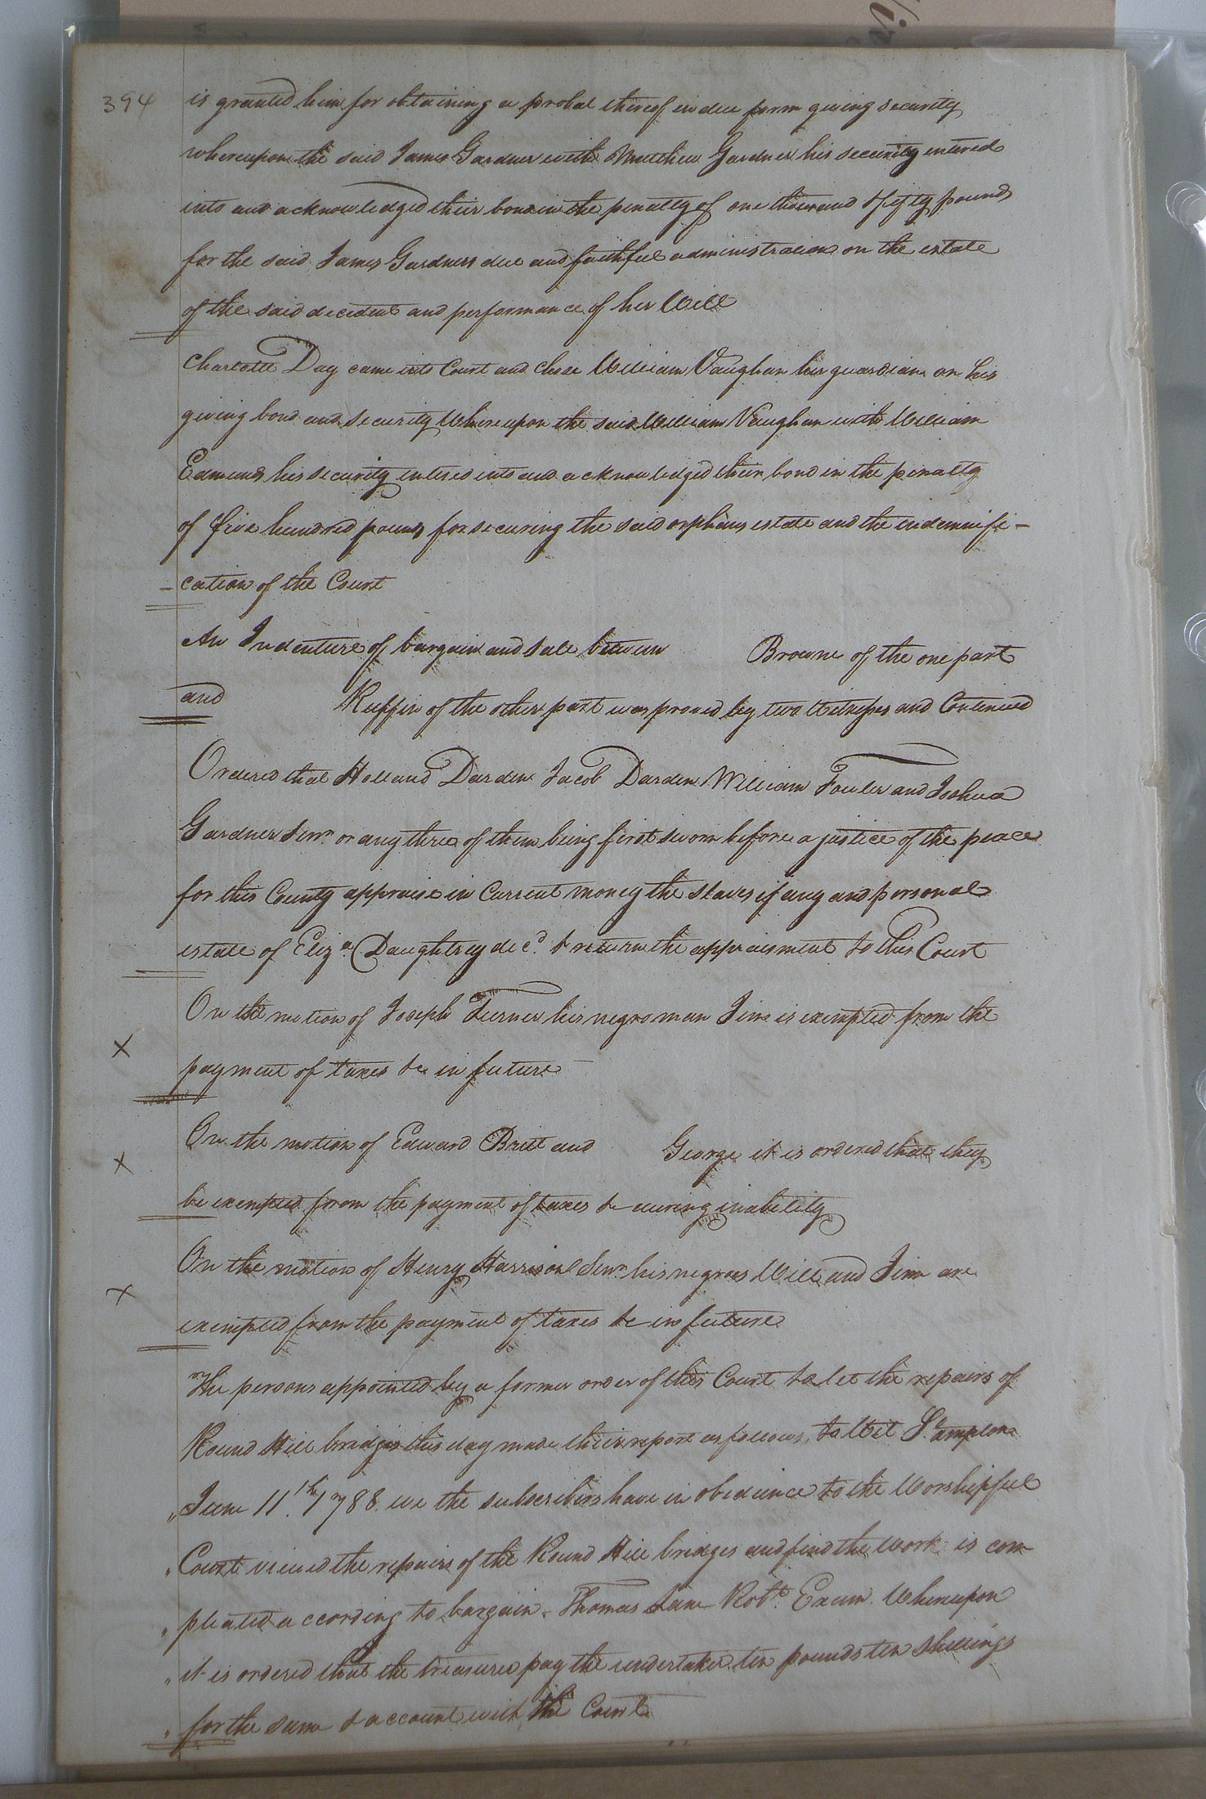 394
is granted him for obtaining a probat thereof in due form giving security
whereupon the said James Gardner with Matthew Gardner his security entered
into and acknowledged their bond in the penalty of one thousand & fifty pounds
for the said James Gardners due and faithful administration on the estate
of the said decedent and performance of her Will
Charlotte Day came into Court and chose William Vaughan her guardian on his
giving bond and security Whereupon the said William Vaughan with William
Edmunds his security entered into and acknowledged their bond in the penalty
of five hundred pounds for securing the said orphans estate and the indemnifi-
-cation of the Court
An Indenture of bargain and sale between Browne of the one part
and Ruffin of the other part was proved by two Witnesses and Continued
Ordered that Holland Darden Jacob Darden William Fowler and Joshua
Gardner Senr. or any three of them being first sworn before a justice of the peace
for this County appraise in Current money the slaves if any and personal
estate of Eliza. Daughtrey decd. & return the appraisment to this Court
On the motion of Joseph Turner his negro man Jim is exempted from the
payment of taxes &c in future
On the motion of Edward Britt and George it is ordered that they
be exempted from the payment of taxes &c during inability
On the motion of Henry Harrison Senr. his negroes Will and Jim are
exempted from the payment of taxes &c in future
The persons appointed by a former order of this Court to let the repairs of
Round Hill bridges this day made their report as follows, to Wit So.ampton
"June 11.th 1788. we the subscribers have in obedience to the Worshipful
"Court viewed the repairs of the Round Hill bridges and find the work is com
"pleated according to bargain. Thomas Lane Robt. Exum. Whereupon
"it is ordered that the treasurer pay the undertaker ten pounds ten shillings
"for the same & account with the Court